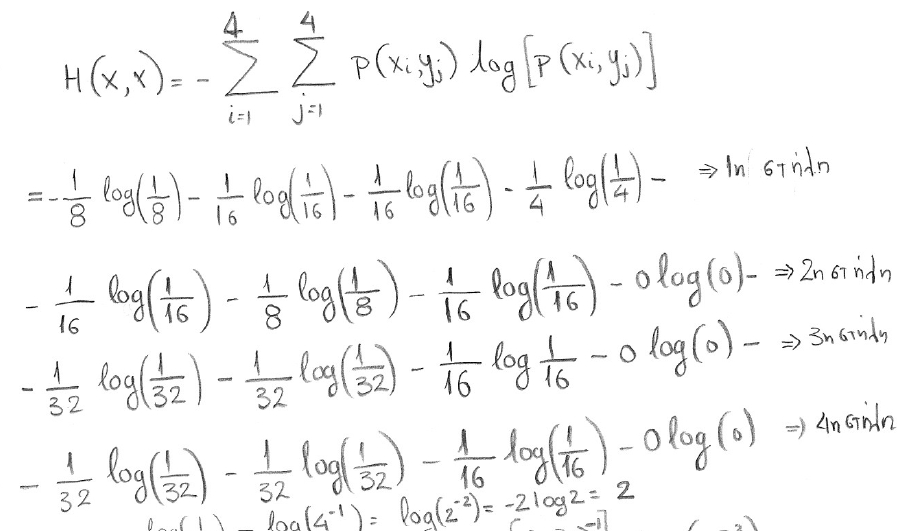 H(x,x) = - \sum_{i=1}^{4} \sum_{j=1}^{4} P(xi,yj) log[P(xi,yj)]
= - 1/8 log(1/8) - 1/16 log(1/16) - 1/16 log(1/16) - 1/4 log(1/4) - ⇒ 1η στήλη
- 1/16 log(1/16) - 1/8 log(1/8) - 1/16 log(1/16) - 0 log(0) - ⇒ 2η στήλη
- 1/32 log(1/32) - 1/32 log(1/32) - 1/16 log 1/16 - 0 log(0) - ⇒ 3η στήλη
- 1/32 log(1/32) - 1/32 log(1/32) - 1/16 log(1/16) - 0 log(0) ⇒ 4η στήλη
log(4^{-1}) = log(2^{-2}) = -2 log2 = 2